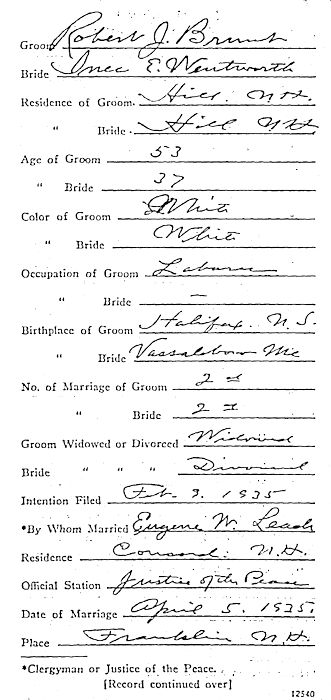 Groom Robert J. Brunt
Bride Inez E. Wentworth
Residence of Groom. Hill. N.H.
" Bride. Hill N.H.
Age of Groom 53
" Bride 37
Color of Groom White
" Bride White
Occupation of Groom Laborer
" Bride —
Birthplace of Groom Halifax. N.S.
" Bride Vassalboro Me
No. of Marriage of Groom 2 d
" Bride 2 d
Groom Widowed or Divorced Widowed
Bride " " " Divorced
Intention Filed Feb. 3. 1935
*By Whom Married Eugene W. Leach
Residence Concord. N.H.
Official Station Justice of the Peace
Date of Marriage April 5. 1935.
Place Franklin N.H.
*Clergyman or Justice of the Peace.
[Record continued over]
12540